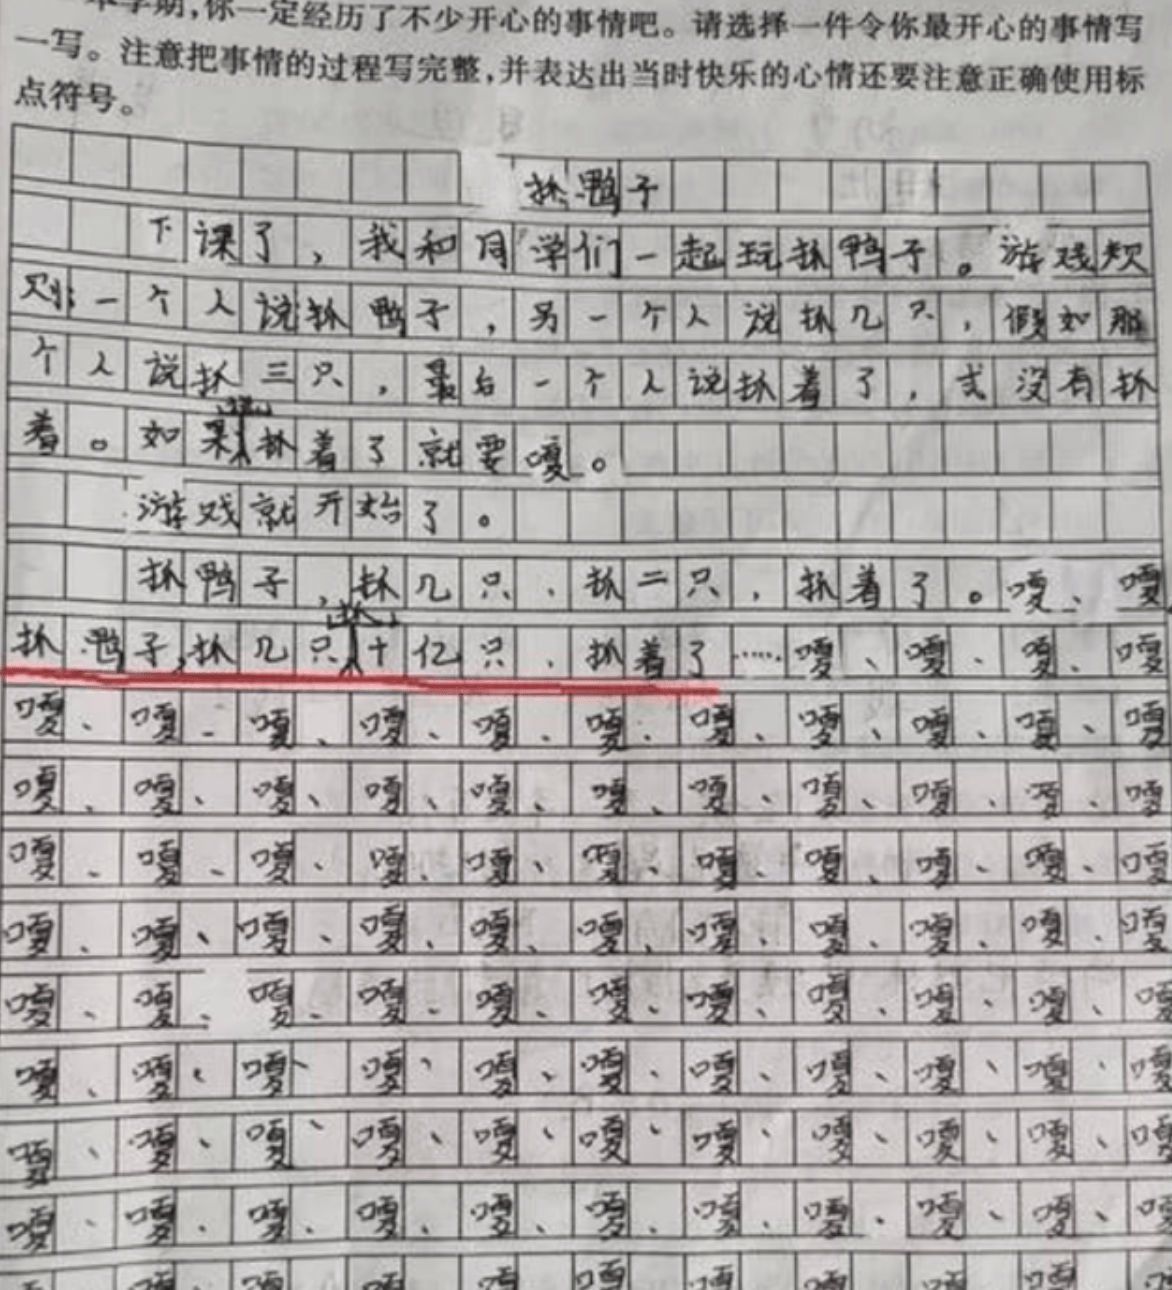 本学期,你一定经历了不少开心的事情吧。请选择一件令你最开心的事情写
一写。注意把事情的过程写完整,并表达出当时快乐的心情还要注意正确使用标
点符号。
抓鸭子
下课了，我和同学们一起玩抓鸭子。游戏规
则:一个人说抓鸭子，另一个人说抓几只，假如那
个人说抓三只，最后一个人说抓着了，或没有抓
着。如果抓着了就要嘎。
游戏就开始了。
抓鸭子，抓几只、抓二只，抓着了。嘎、嘎
抓鸭子,抓几只抓十亿只、抓着了……嘎、嘎、嘎、嘎
嘎、嘎、嘎、嘎、嘎、嘎、嘎、嘎、嘎、嘎、嘎
嘎、嘎、嘎、嘎、嘎、嘎、嘎、嘎、嘎、嘎、嘎
嘎、嘎、嘎、嘎、嘎、嘎、嘎、嘎、嘎、嘎、嘎
嘎、嘎、嘎、嘎、嘎、嘎、嘎、嘎、嘎、嘎、嘎
嘎、嘎、嘎、嘎、嘎、嘎、嘎、嘎、嘎、嘎、嘎
嘎、嘎、嘎、嘎、嘎、嘎、嘎、嘎、嘎、嘎、嘎
嘎、嘎、嘎、嘎、嘎、嘎、嘎、嘎、嘎、嘎、嘎
嘎、嘎、嘎、嘎、嘎、嘎、嘎、嘎、嘎、嘎、嘎